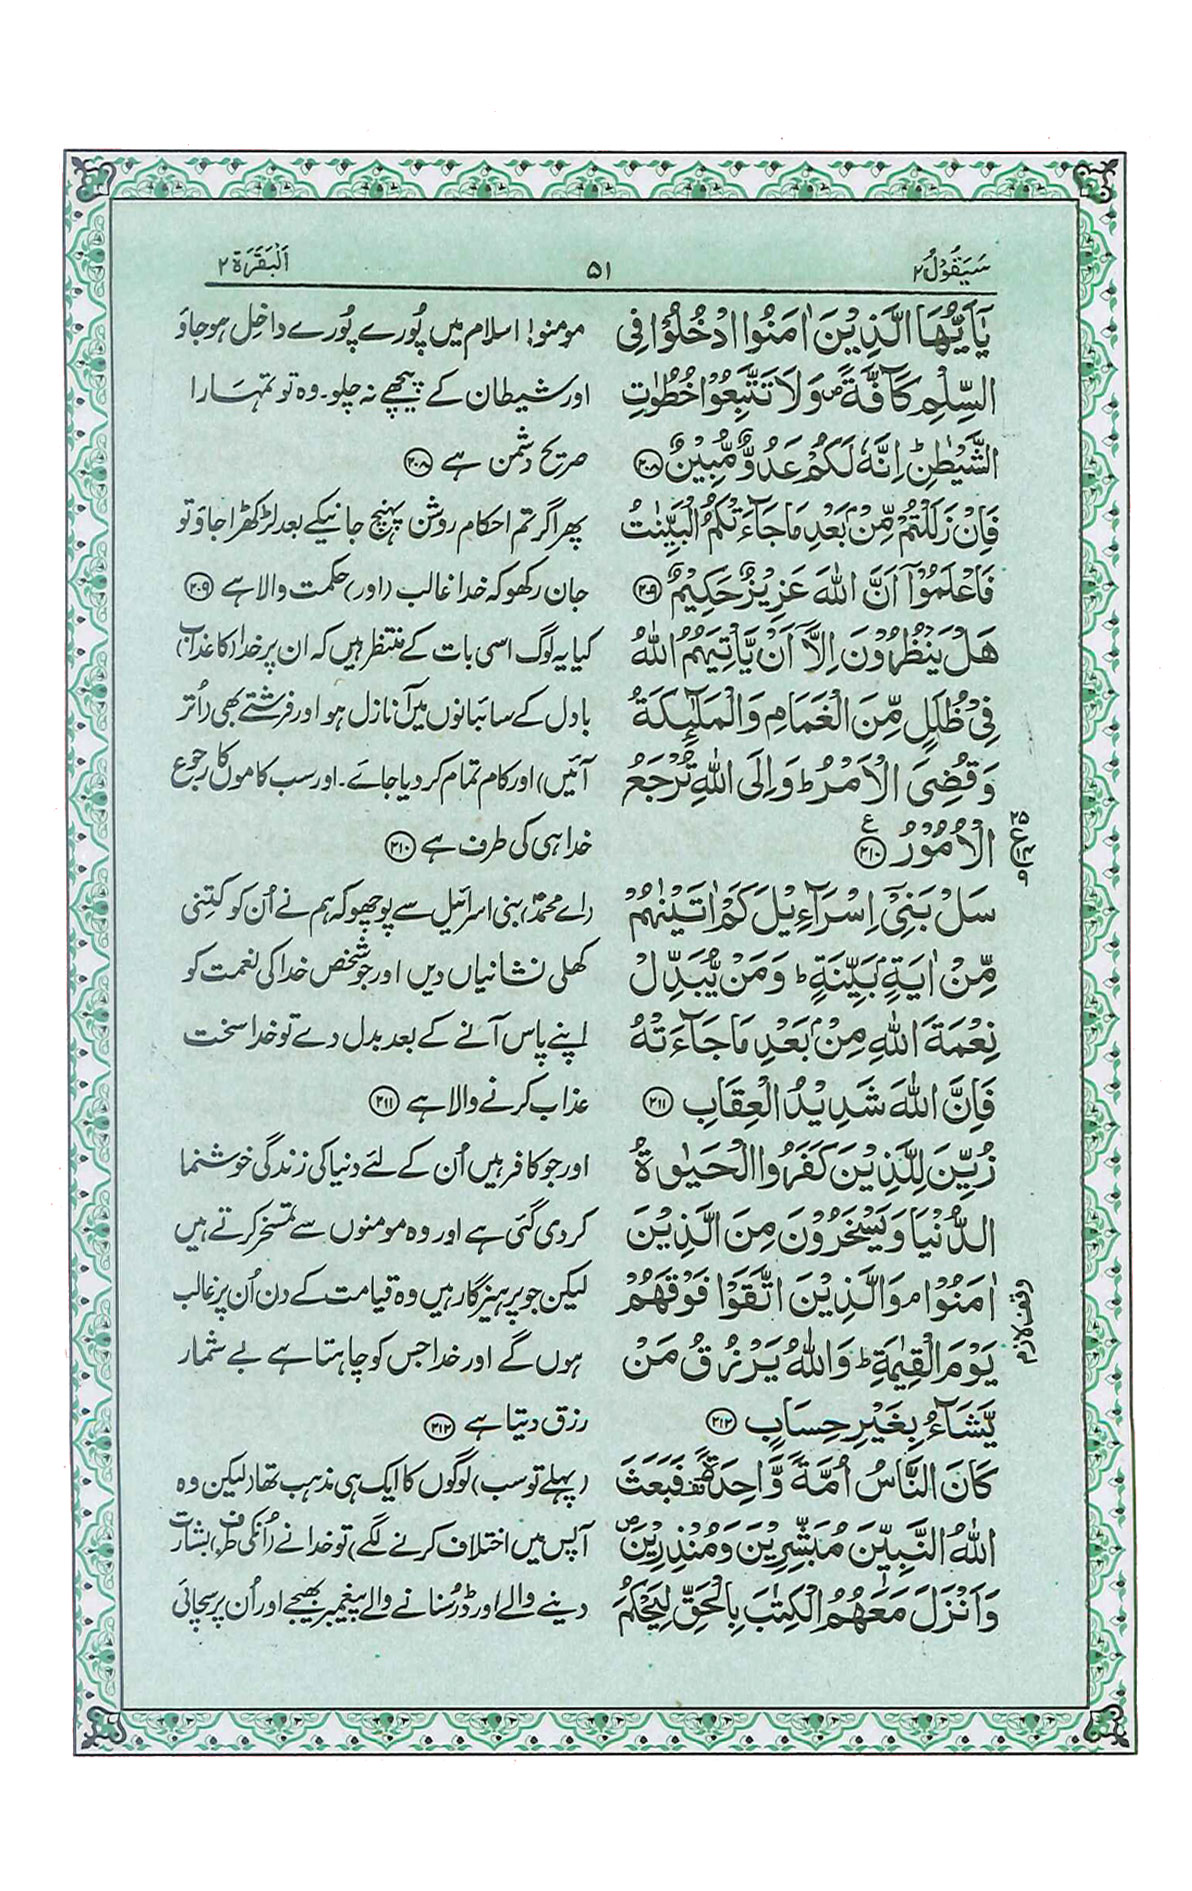 سَيَقُوْلُ ٢ ٥١ اَلْبَقَرَة ٢
يٰۤاَيُّهَا الَّذِيْنَ اٰمَنُوا ادْخُلُوْا فِي مومنو! اسلام میں پُورے پُورے داخِل ہوجاؤ
السِّلْمِ كَآفَّةً ۪ وَلَا تَتَّبِعُوْا خُطُوٰتِ اور شیطان کے پیچھے نہ چلو۔ وہ تو تمہارا
الشَّيْطٰنِ ؕ اِنَّهٗ لَكُمْ عَدُوٌّ مُّبِيْنٌ ۝٢٠٨ صریح دشمن ہے ۝٢٠٨
فَاِنْ زَلَلْتُمْ مِّنْۢ بَعْدِ مَا جَآءَتْكُمُ الْبَيِّنٰتُ پھر اگر تم احکام روشن پہنچ جانیکے بعد لڑکھڑا جاؤ تو
فَاعْلَمُوْۤا اَنَّ اللّٰهَ عَزِيْزٌ حَكِيْمٌ ۝٢٠٩ جان رکھو کہ خدا غالب (اور) حکمت والا ہے ۝٢٠٩
هَلْ يَنْظُرُوْنَ اِلَّاۤ اَنْ يَّاْتِيَهُمُ اللّٰهُ کیا یہ لوگ اسی بات کے منتظر ہیں کہ ان پر خدا (کا عذاب)
فِيْ ظُلَلٍ مِّنَ الْغَمَامِ وَالْمَلٰٓئِكَةُ بادل کے سائبانوں میں آ نازل ہو اور فرشتے بھی (اُتر
وَقُضِيَ الْاَمْرُ ؕ وَاِلَى اللّٰهِ تُرْجَعُ آئیں) اور کام تمام کر دیا جائے۔ اور سب کاموں کا رجوع
الْاُمُوْرُ ۝٢١٠ ع خدا ہی کی طرف ہے ۝٢١٠
سَلْ بَنِيْۤ اِسْرَآءِيْلَ كَمْ اٰتَيْنٰهُمْ (اے محمدؐ) بنی اسرائیل سے پوچھو کہ ہم نے اُن کو کتنی
مِّنْ اٰيَةٍۭ بَيِّنَةٍ ؕ وَمَنْ يُّبَدِّلْ کھلی نشانیاں دیں اور جو شخص خدا کی نعمت کو
نِعْمَةَ اللّٰهِ مِنْۢ بَعْدِ مَا جَآءَتْهُ اپنے پاس آنے کے بعد بدل دے تو خدا سخت
فَاِنَّ اللّٰهَ شَدِيْدُ الْعِقَابِ ۝٢١١ عذاب کرنے والا ہے ۝٢١١
زُيِّنَ لِلَّذِيْنَ كَفَرُوا الْحَيٰوةُ اور جو کافر ہیں اُن کے لئے دنیا کی زندگی خوشنما
الدُّنْيَا وَيَسْخَرُوْنَ مِنَ الَّذِيْنَ کر دی گئی ہے اور وہ مومنوں سے تمسخر کرتے ہیں
اٰمَنُوْا ۘ وَالَّذِيْنَ اتَّقَوْا فَوْقَهُمْ لیکن جو پرہیزگار ہیں وہ قیامت کے دن اُن پر غالب
وقف لازم
يَوْمَ الْقِيٰمَةِ ؕ وَاللّٰهُ يَرْزُقُ مَنْ ہوں گے اور خدا جس کو چاہتا ہے بے شمار
يَّشَآءُ بِغَيْرِ حِسَابٍ ۝٢١٢ رزق دیتا ہے ۝٢١٢
كَانَ النَّاسُ اُمَّةً وَّاحِدَةً ۫ فَبَعَثَ (پہلے تو سب) لوگوں کا ایک ہی مذہب تھا (لیکن وہ
اللّٰهُ النَّبِيّٖنَ مُبَشِّرِيْنَ وَمُنْذِرِيْنَ ۪ آپس میں اختلاف کرنے لگے) تو خدا نے (اُنکی طرف) بشارت
وَاَنْزَلَ مَعَهُمُ الْكِتٰبَ بِالْحَقِّ لِيَحْكُمَ دینے والے اور ڈر سُنانے والے پیغمبر بھیجے اور اُن پر سچائی